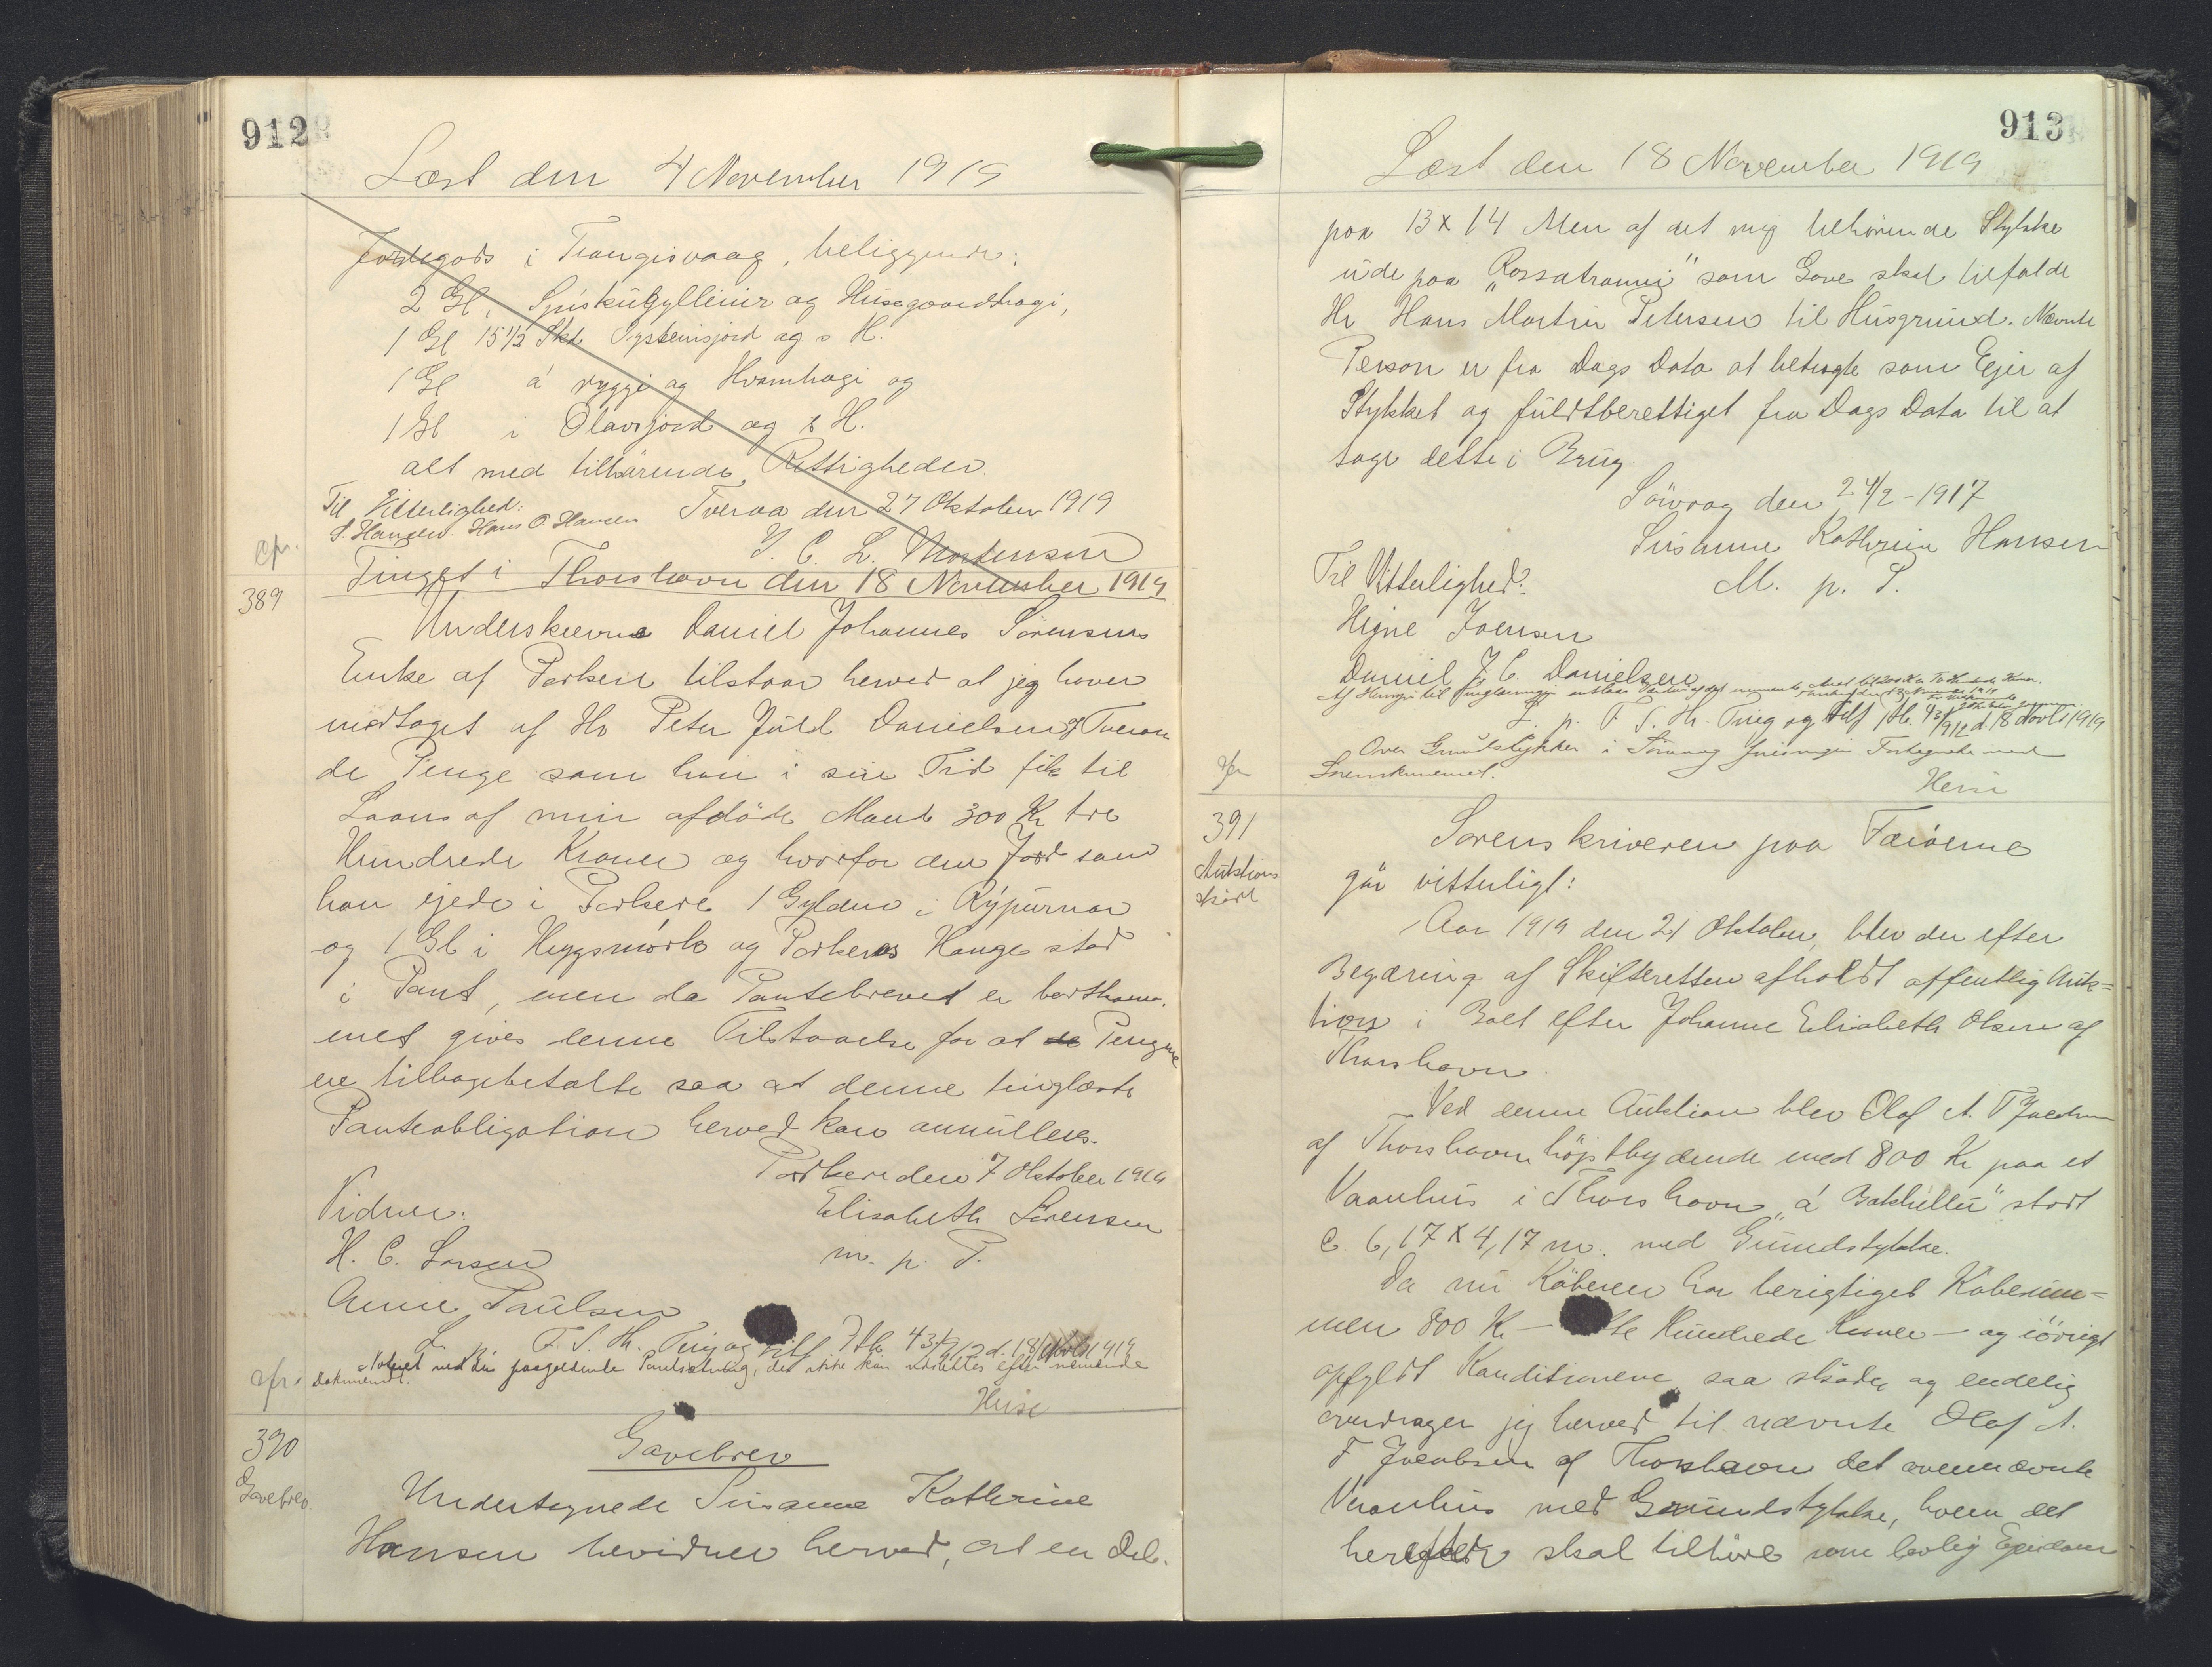 912
Læst den 4 November 1919
Jordegods i Trangisvaag, beliggende:
2 Gl, Spiskugyllinir og Husegaardhagi,
1 Gl 15 1/2 Sk Systemisjord og s H.
1 Gl á ryggi og Hvamhagi og
1 Gl i Olavsjord og s H.
alt med tilhörende Rettigheder.
Til Vitterlighed: Tveraa den 27 Oktober 1919
S. Hansen. Hans O Hansen
J. C. L. Mortensen
cfr.
Tinget i Thorshavn den 18 November 1919
389
Underskrevne Daniel Johannes Sörensens
Enke af Porkere tilstaar herved at jeg haver
modtaget af Hr Peter Juul Danielsen af Tveraa
de Penge som han i sin Tid fik til
Laans af min afdöde Mand 300 Kr tre
Hundrede Kroner og hvorfor den Jord som
han ejede i Porkere 1 Gylden i Rýpurnar
og 1 Gl i Heggsmörk og Porkeres Hauge stod
i Pant, men da Pantebrevet er bortkom-
met gives denne Tilstaaelse for at de Pengene
ere tilbagebetalte saa at denne tinglæste
Panteobligation herved kan annulleres.
Porkere den 7 Oktober 1919
Vidner: Elisabeth Sörensen
H. C. Larsen m. p. P.
Anne Paulsen
L. p. F. S. Hr. Ting og Vilf Jtb. 43 1/912 d. 18 Novbr 1919
cfr. Noteret ved en paagældende Pantsætning, der ikke kan udslettes efter nærværende
Dokument.
Heise
390
Gavebrev
Gavebrev.
Undertegnede Susanne Kathrine
Hansen bevidner herved, at en Del.
913
Læst den 18 November 1919
paa 13 x 14 Alen af det mig tilhörende Stykke
ude paa "Rossatrømi" som Gave skal tilfalde
Hr Hans Martin Petersen til Husgrund. Nævnte
Person er fra Dags Dato at betragte som Ejer af
Stykket og fuldtberettiget fra Dags Dato til at
tage dette i Brug
Sörvaag den 24/2 - 1917
Susanne Kathrine Hansen
Til Vitterlighed: M. p. P.
Higne Joensen
Daniel J. C. Danielsen
L. p. F. S. Hr. Ting og Vilf Jtb. 43 1/912 d. 18 Novbr 1919
cfr Over Grundstykker i Sörvaag föres ingen Fortegnelse ved
Sorenskriveriet.
Heise
391
Auktions
skøde
Sorenskriveren paa Færöerne
gör vitterligt:
Aar 1919 den 21 Oktober, blev der efter
Begæring af Skifteretten afholdt offentlig Auk=
tion i Boet efter Johanne Elisabeth Olsen af
Thorshavn.
Ved denne Auktion blev Olaf A. F Jacobsen
af Thorshavn höjstbydende med 800 Kr paa et
Vaanhus i Thorshavn "á Bakkhellu" stort
c. 6,17 x 4,17 m. med Grundstykke.
Da nu Köberen har berigtiget Köbesum=
men 800 Kr — Hundrede Kroner — og iövrigt
opfyldt Konditionerne, saa skøder og endelig
overdrager jeg herved til nævnte Olaf A.
F Jacobsen af Thorshavn det ovennævnte
Vaanhus med Grundstykke, hvem det
herefter skal tilhöre som lovlig Ejendom